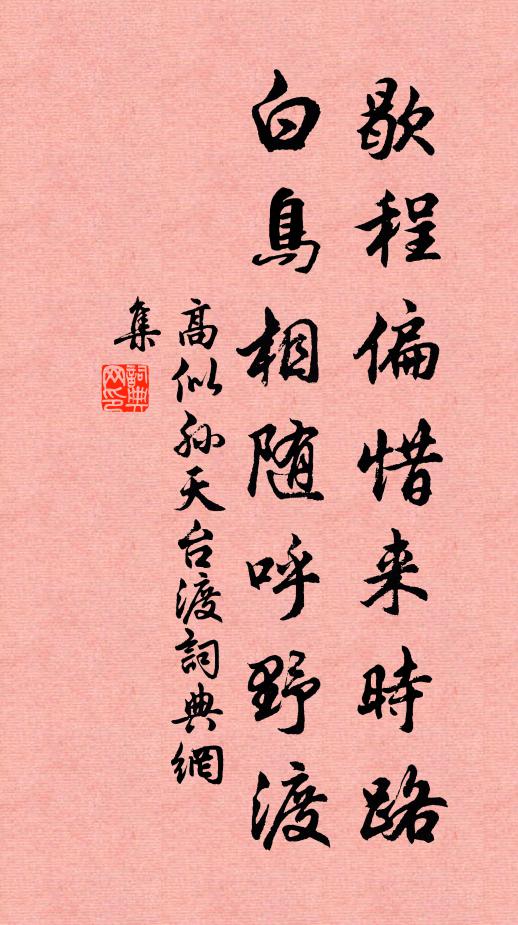 歇程偏惜来時路
白鳥相随呼野渡
高似孙天台渡詞典網
集
詞典网印